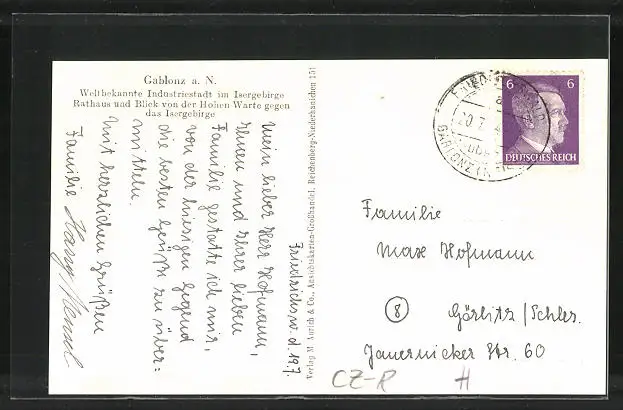 Gablonz a. N.
Weltbekannte Industriestadt im Isergebirge
Rathaus und Blick von der Hohen Warte gegen
das Isergebirge
Friedrichsw. d. 19.7.
Mein lieber Herr Hofmann,
Ihnen und Ihrer lieben
Familie gestatte ich mir,
von der hiesigen Gegend
die besten Grüße zu über=
mitteln.
Mit herzlichen Grüßen
Familie
Verlag M. Aurich & Co., Ansichtskarten-Großhandel, Reichenberg-Niederhanichen 151
6 6
DEUTSCHES REICH
20.7.
GABLONZ
Familie
Max Hofmann
8 Görlitz/Schles.
Jauernicker Str. 60
CZ-R H